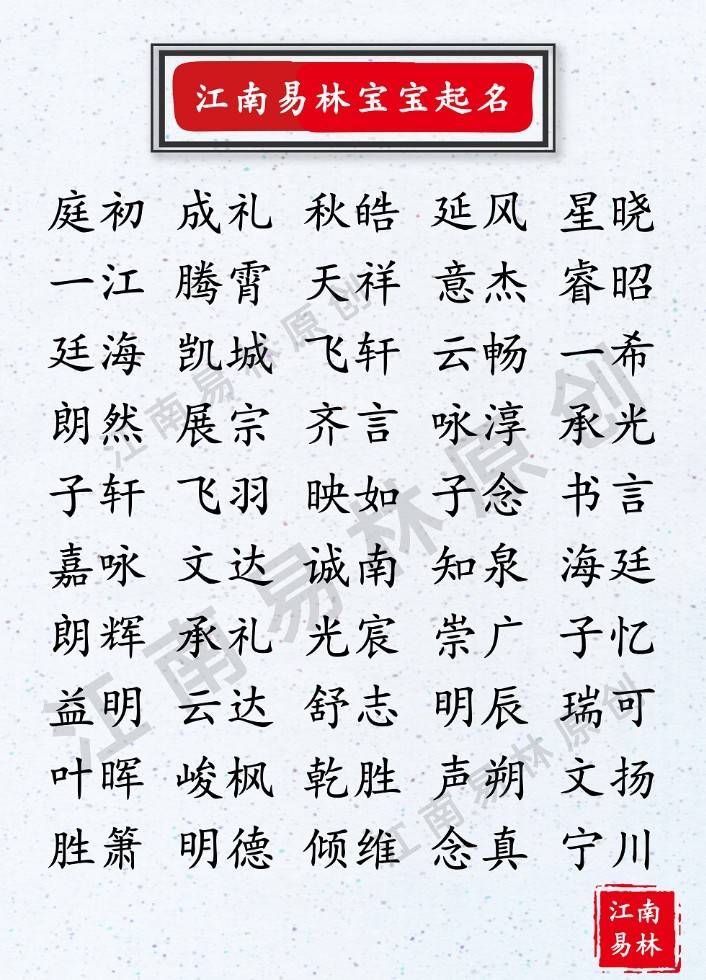 江南易林宝宝起名
庭初 成礼 秋皓 延风 星晓
一江 腾霄 天祥 意杰 睿昭
廷海 凯城 飞轩 云畅 一希
朗然 展宗 齐言 咏淳 承光
子轩 飞羽 映如 子念 书言
嘉咏 文达 诚南 知泉 海廷
朗辉 承礼 光宸 崇广 子忆
益明 云达 舒志 明辰 瑞可
叶晖 峻枫 乾胜 声朔 文扬
胜箫 明德 倾维 念真 宁川
江南易林原创
江南易林原创
江南易林原创
江南
易林